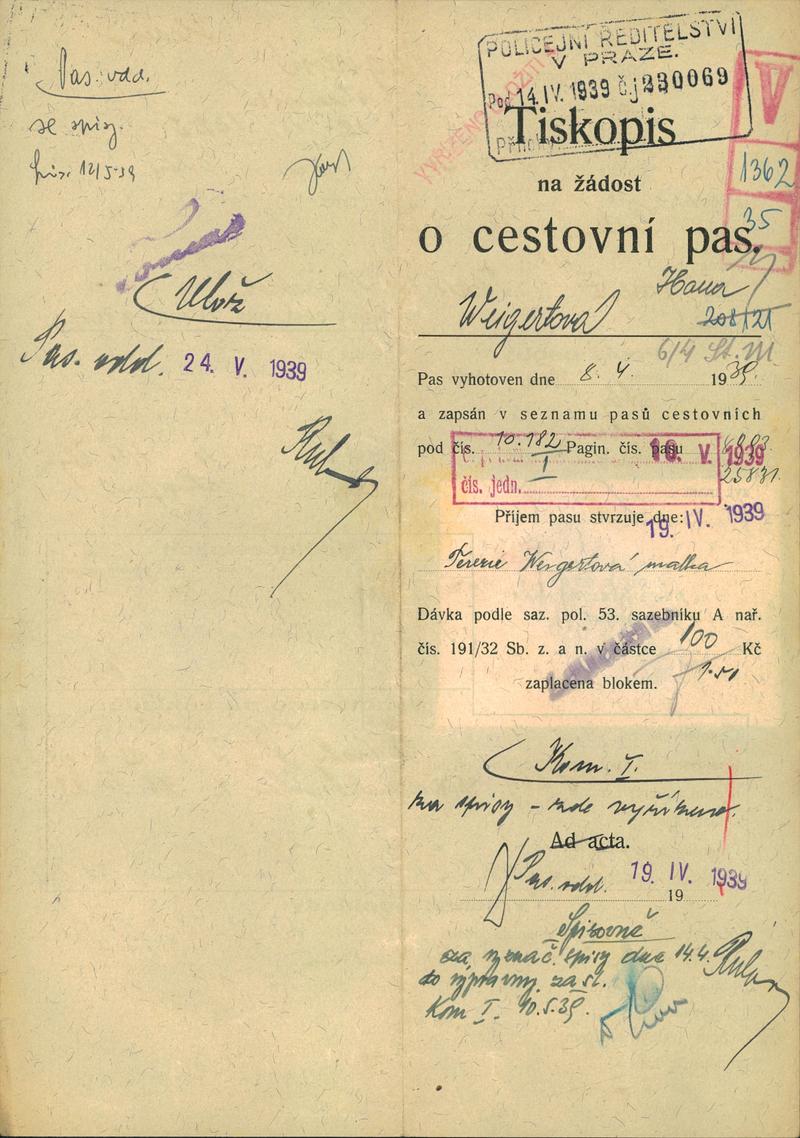 Pas. odd.
se spisy.
12/5-39
Ulož
Pas. odd. 24. V. 1939
POLICEJNÍ ŘEDITELSTVÍ
V PRAZE.
Pod 14. IV. 1939 čj 230069
V
1362
35
Tiskopis
na žádost
o cestovní pas.
Weigertová Hana
208/21
6/4
Pas vyhotoven dne 8. 4. 1939.
a zapsán v seznamu pasů cestovních
pod čís. 10.182/I Pagin. čís. pasu
25831
16. V. 1939
čís. jedn.
Příjem pasu stvrzuje dne: 19. IV. 1939
Terezie Weigertová matka
Dávka podle saz. pol. 53. sazebníku A nař.
čís. 191/32 Sb. z. a n. v částce 100 Kč
1·50
zaplacena blokem.
Kom. I.
na spisy – zde vyříkeno.
Ad acta.
Pas. odd. 19. IV. 1939
19
Spisovně
spisy dne 14.4.
do výpravny zasl.
Kom I. 10.5.39.